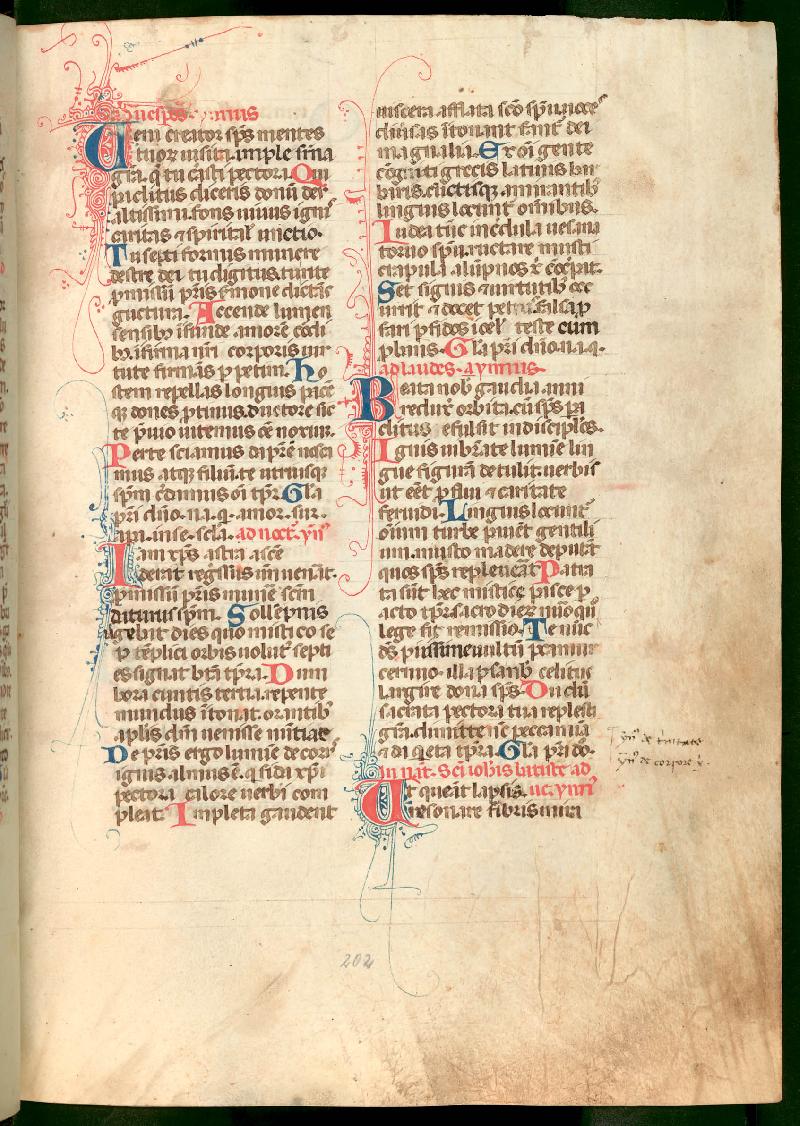 Ad uesp̃s. ymnus
Ueni creator sp̃s mentes
tuoꝝ uisita. imple sup̃na
gr̃a. q̃ tu c̃asti pectora. Qui
p̃aclitus diceris donũ dei
altissimi. fons uiuus igni᷒
caritas ⁊ spiritał unctio.
Tu septiformis munere
dextre dei tu digitus. tu rite
ꝓmissũ pr̃is s̃mone dictãs
guctura. Accende lumen
sensibꝫ ĩfunde amorẽ cordi
bꝫ. ĩfirma nr̃i corporis uir
tute firmãs ꝑpetim. Ho
stem repellas longius pacẽ
qꝫ dones ꝓtinus. ductore sic
te p̃uio uitemus õe noxiũ.
Per te sciamus da pr̃em nosca
mus atqꝫ filiũ. te utriusqꝫ
sp̃m c̃damus oĩ tp̃r. Gl̃a
pr̃i dño. na. q. a mor. sur.
ad noct̃. yñs
Iam xp̃s astra ascẽ
derat regressus uñ uenat.
ꝓmissũ pr̃is munẽ sc̃m
diturus sp̃m. Sollempnis
ugebit dies quo mistico se
ptẽplici orbis uolut᷒ septi
es signat bt̃a tp̃ra. Dum
hora cunctis tertia. repente
mundus ĩtonat. orantibꝫ
ap̃lis dm̃ uenisse nuntiat.
De pr̃is ergo lumĩe decor᷒
ignis almus ẽ. q̃ fida xp̃i
pectora calore uerbi com
pleat. Impleta gaudent
uiscera afflata sc̃o sp̃u. uoce᷒
diũsas ĩtonant fant᷒ dei
magnalia. Ex oĩ gente
cogniti grecis latinis bar
baris. cũctisqꝫ amirantibꝫ
linguis locũnt᷒ omnibus.
Iudea tũc incredula uesana
toruo sp̃u. ructare musti
crapula alũpnos x̃ cõcpit.
Set signis ⁊ uirtutibꝫ occ
urrit ⁊ docet petr᷒. falsa ꝓ
fari ꝑfidos ioel᷒ teste cum
ꝓbans. Gl̃a pr̃i dño. na. q.
ad laudes. aymnus.
Beata nob̃ gaudia. anni
reduxit orbita. cũ sp̃s pa
clitus efulsit in discip̃los.
Ignis uibr̃ate lumĩe lin
gue figurã detulit. uerbis
ut eẽt ꝓflui ⁊ caritate
feruidi. Linguis locũnt᷒
oĩum turbe pauẽt gentili
um. musto madere deputãt
quos sp̃s repleuerat. Patra
ta sũt hec mistice pasce ꝑ
acto tp̃r. sacro dieꝝ nũo quo
lege fit remissio. Te nũc
ds̃ piissime uultu precamur
cernuo. illapsa nob̃ celitus
largire dona sp̃s. Dudũ
sacrata pectora tua replesti
gr̃a. dimitte nc̃ peccamĩa
⁊ da q̃eta tp̃ra. Gl̃a pr̃i dño.
In nat̃. sc̃i ioh̃is batiste ad
uc. ymñ
Ut queãt laxis.
resonare fibris mira
yñ᷒ de trĩtate
yñ᷒ de corpore x̃.
202